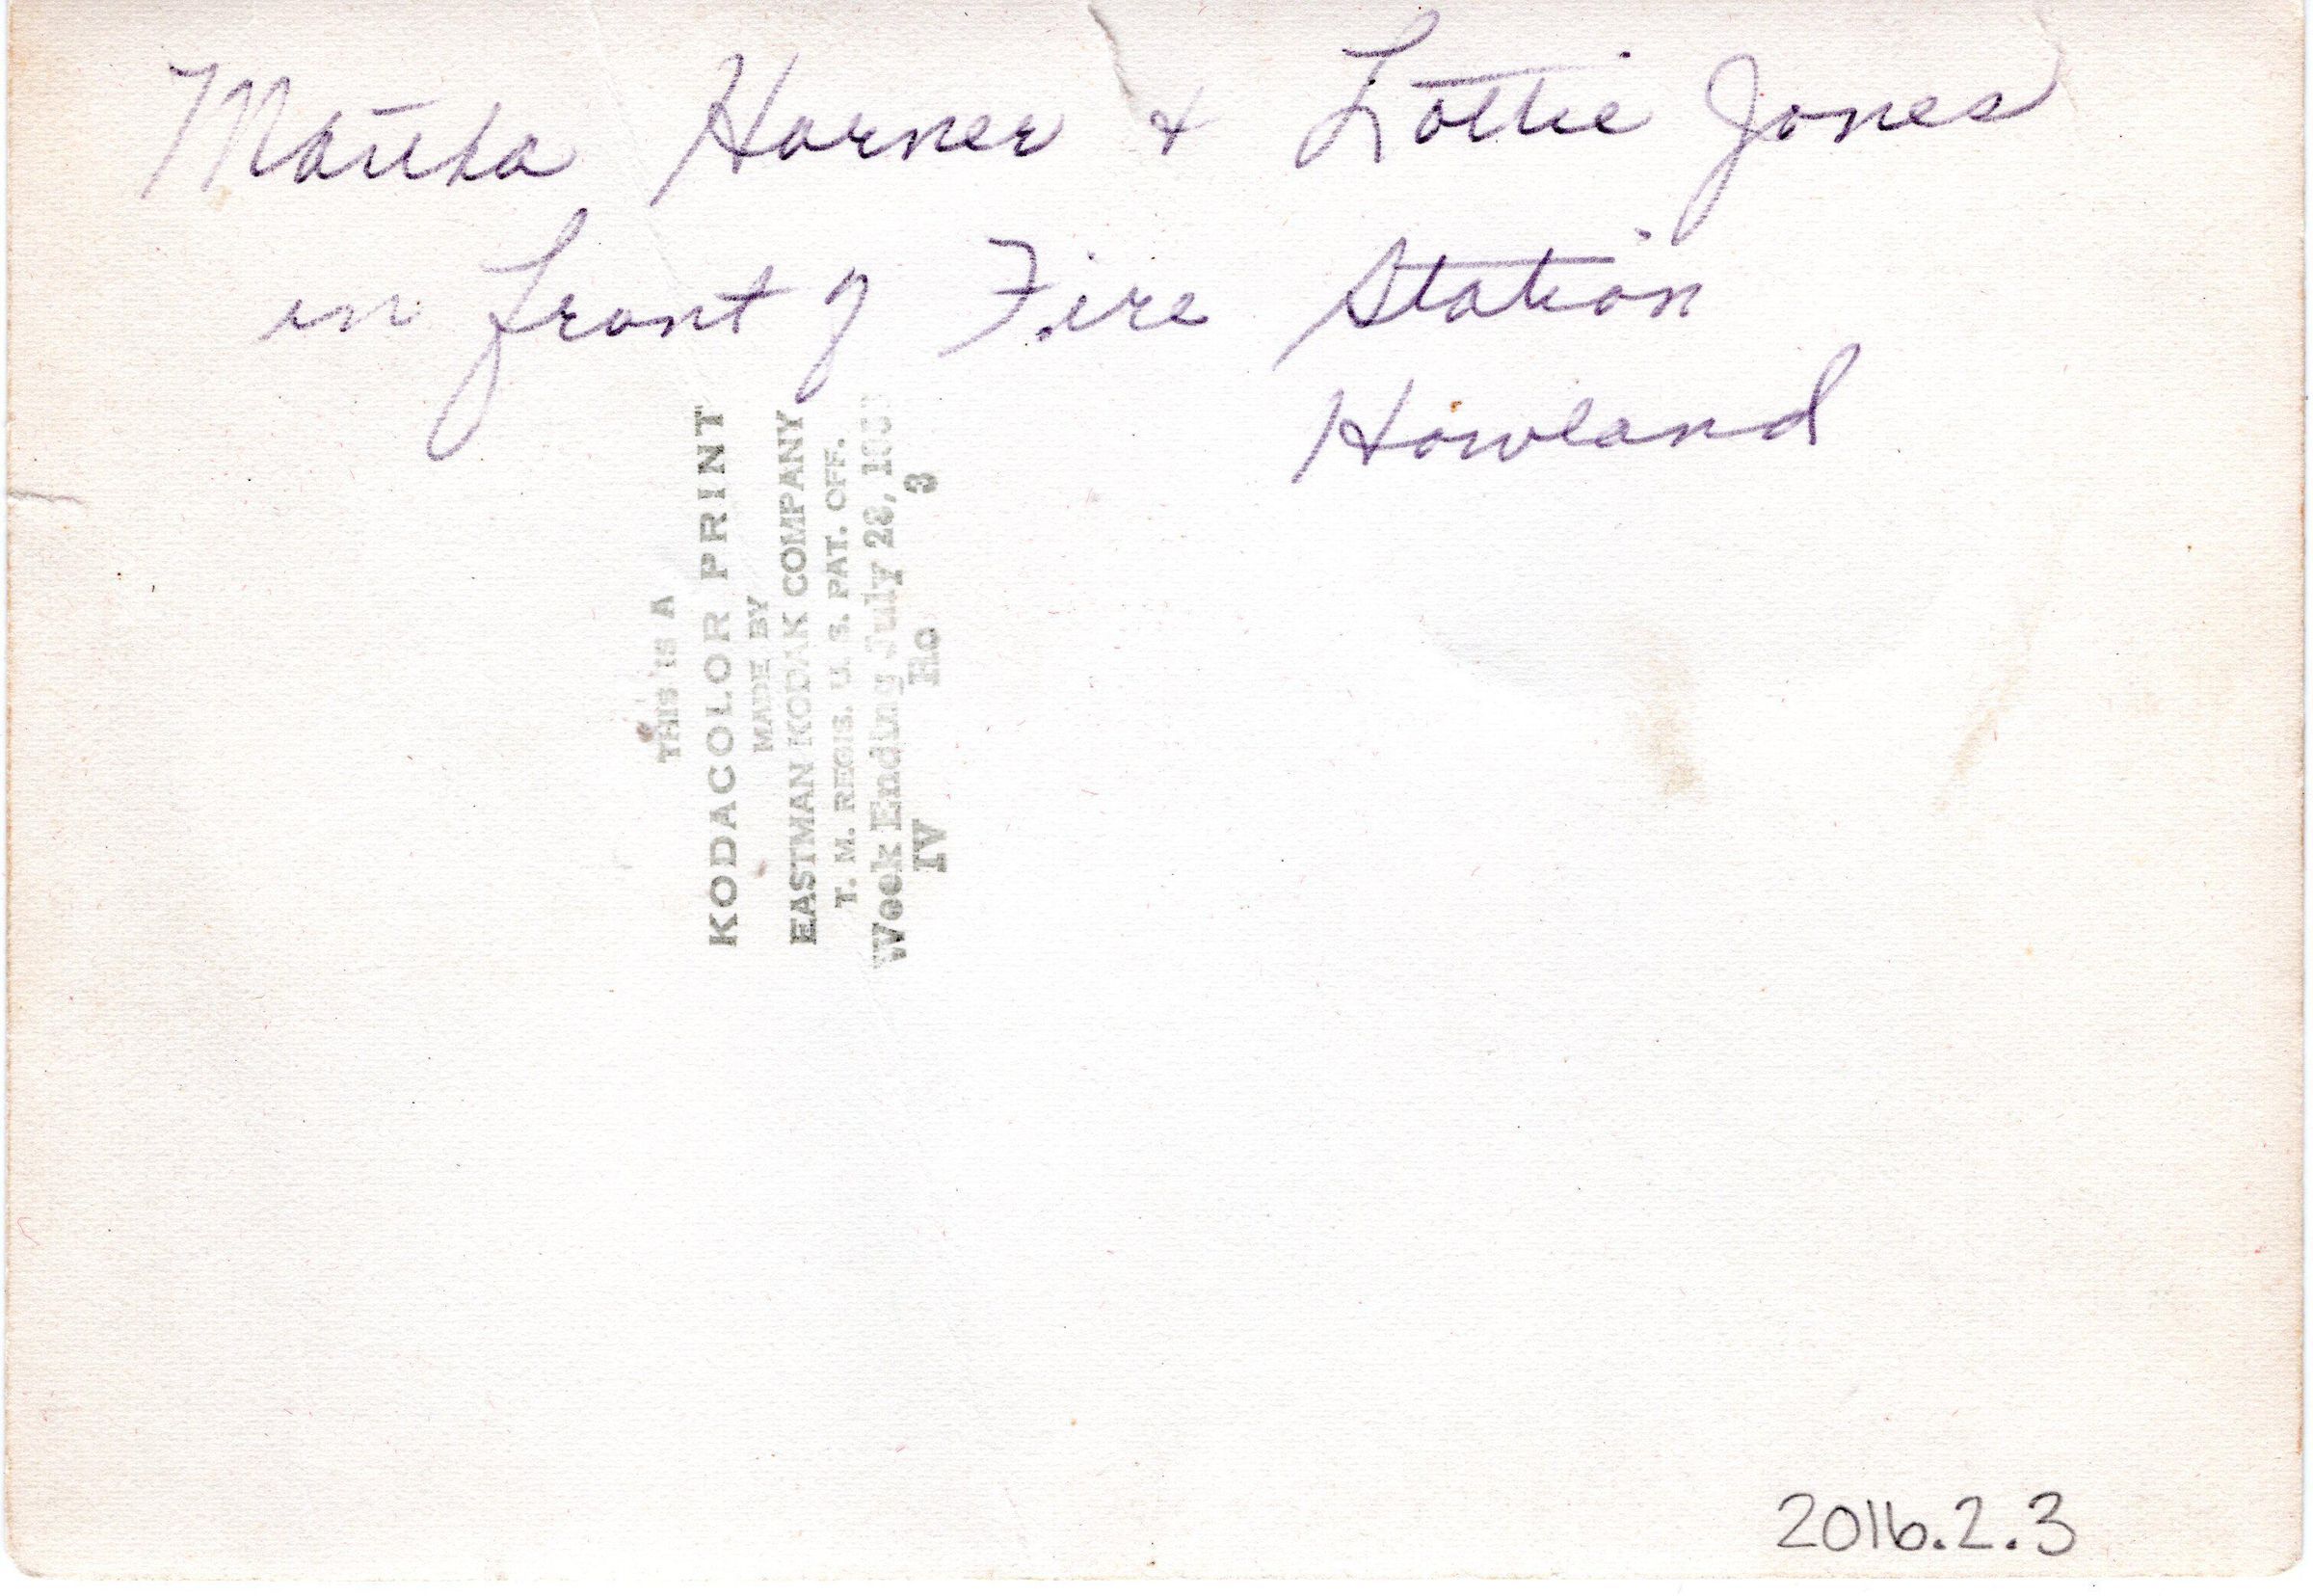 Martha Horner & Lottie Jones
in front of Fire Station
Howland
THIS IS A
KODACOLOR PRINT
MADE BY
EASTMAN KODAK COMPANY
T. M. REGIS. U. S. PAT. OFF.
Week Ending July 28,
IV Ro 3
2016.2.3